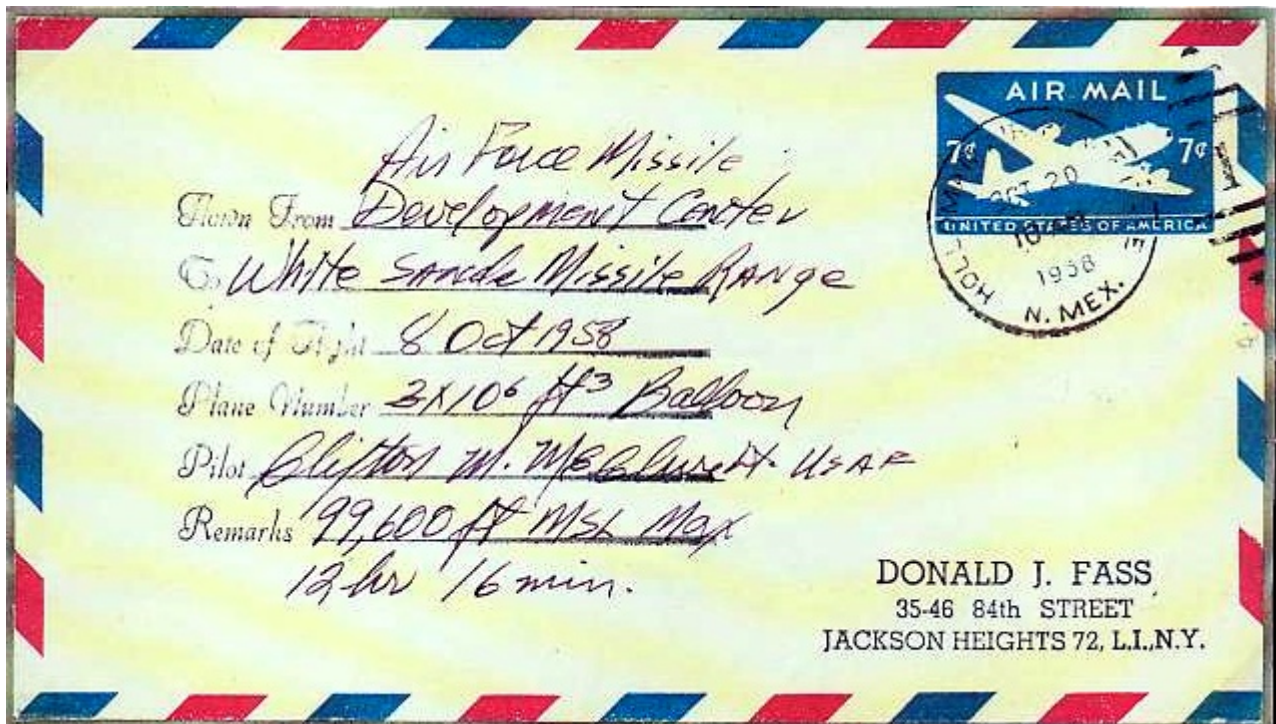 AIR MAIL
7¢ 7¢
UNITED STATES OF AMERICA
OCT 20
10 AM
1958
N. MEX.
Air Force Missile
Flown From Development Center
To White Sands Missile Range
Date of Flight 8 Oct 1958
Plane Number 3x10⁶ ft³ Balloon
Pilot Clifton M. McClure USAF
Remarks 99,600 ft MSL Max
12 hr 16 min.
DONALD J. FASS
35-46 84th STREET
JACKSON HEIGHTS 72, L.I.,N.Y.